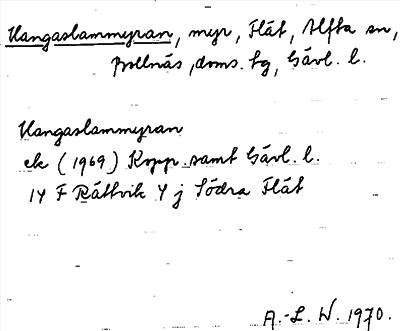 Hangaslammyran, myr, Flät, Alfta sn,
Bollnäs, doms. tg, Gävl. l.
Hangaslammyran
ek (1969) Kopp. samt Gävl. l.
14 F Rättvik 4 j Södra Flät
A.-L. W. 1970.